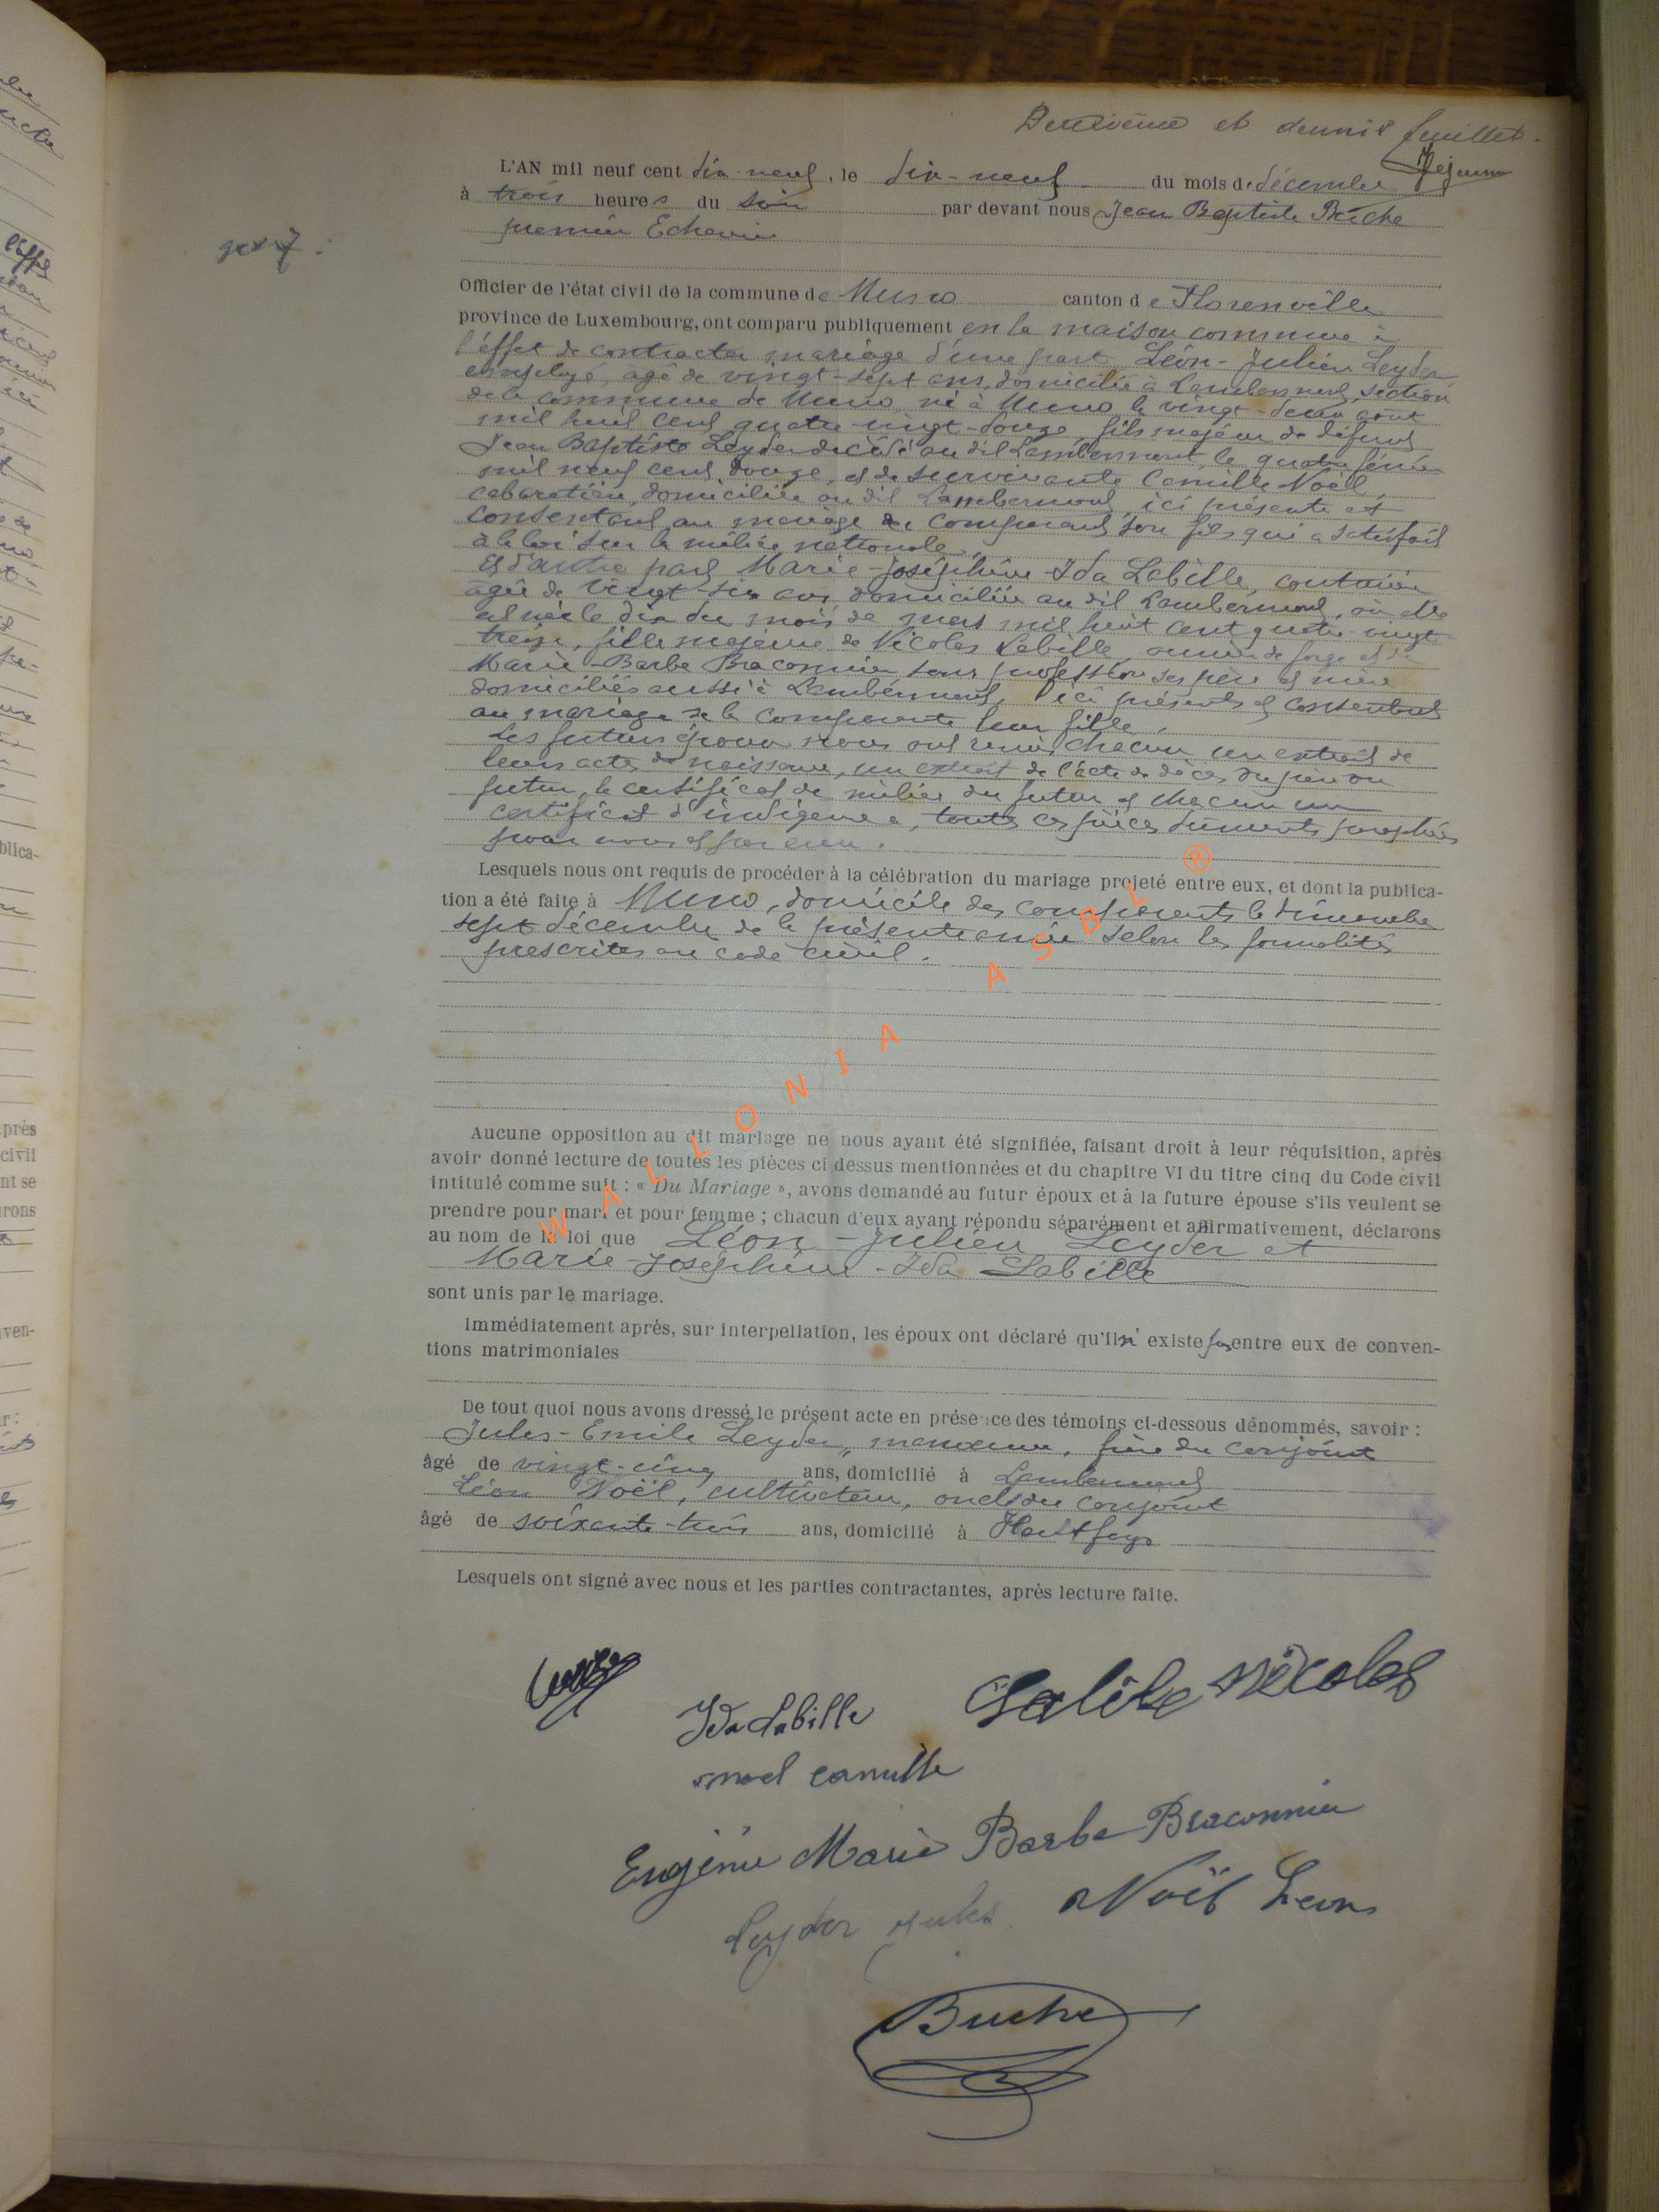 Deuxième et dernier feuillet.
Lejeune
L'AN mil neuf cent dix-neuf, le dix-neuf du mois de décembre
à trois heures du soir par devant nous Jean Baptiste Buche
premier Echevin
N° 7.
Officier de l'état civil de la commune de Muno canton de Florenville
province de Luxembourg, ont comparu publiquement en la maison commune à
l'effet de contracter mariage d'une part Léon-Julien Leyder
employé, âgé de vingt-sept ans, domicilié à Lambermont, section
de la commune de Muno, né à Muno le vingt-deux août
mil huit cent quatre-vingt-douze, fils majeur de défunt
Jean Baptiste Leyder décédé au dit Lambermont, le quatre février
mil neuf cent douze, et de survivante Camille Noël,
cabaretière, domiciliée au dit Lambermont, ici présente et
consentant au mariage du comparant son fils qui a satisfait
à la loi sur la milice nationale.
Et d'autre part Marie-Joséphine-Ida Labille, couturière
âgée de vingt-six ans, domiciliée au dit Lambermont, où elle
est née le dix du mois de mars mil huit cent quatre-vingt-
treize, fille majeure de Nicolas Labille, ouvrier de forge et de
Marie-Barbe Braconnier sans profession ses père et mère
domiciliés aussi à Lambermont, ici présents et consentants
au mariage de la comparante leur fille.
Les futurs époux nous ont remis chacun un extrait de
leurs actes de naissance, un extrait de l'acte de décès du père du
futur, le certificat de milice du futur et chacun un
certificat d'indigence, toutes ces pièces dûment paraphées
par nous et par eux.
Lesquels nous ont requis de procéder à la célébration du mariage projeté entre eux, et dont la publica-
tion a été faite à Muno, domicile des comparants le dimanche
sept décembre de la présente année selon les formalités
prescrites au code civil.
Aucune opposition au dit mariage ne nous ayant été signifiée, faisant droit à leur réquisition, après
avoir donné lecture de toutes les pièces ci dessus mentionnées et du chapitre VI du titre cinq du Code civil
intitulé comme suit : « Du Mariage », avons demandé au futur époux et à la future épouse s'ils veulent se
prendre pour mari et pour femme ; chacun d'eux ayant répondu séparément et affirmativement, déclarons
au nom de la loi que Léon-Julien Leyder et
Marie-Joséphine-Ida Labille
sont unis par le mariage.
Immédiatement après, sur interpellation, les époux ont déclaré qu'il n'existe pas entre eux de conven-
tions matrimoniales
De tout quoi nous avons dressé le présent acte en présence des témoins ci-dessous dénommés, savoir :
Jules-Emile Leyder, manœuvre, frère du conjoint
âgé de vingt-cinq ans, domicilié à Lambermont
Léon Noël, cultivateur, oncle du conjoint
âgé de soixante-trois ans, domicilié à Hautfays
Lesquels ont signé avec nous et les parties contractantes, après lecture faite.
Ida Labille
Labille Nicolas
noel camille
Eugénie Marie Barbe Braconnier
Leyder Jules
Noël Leon
Buche
WALLONIA ASBL ®